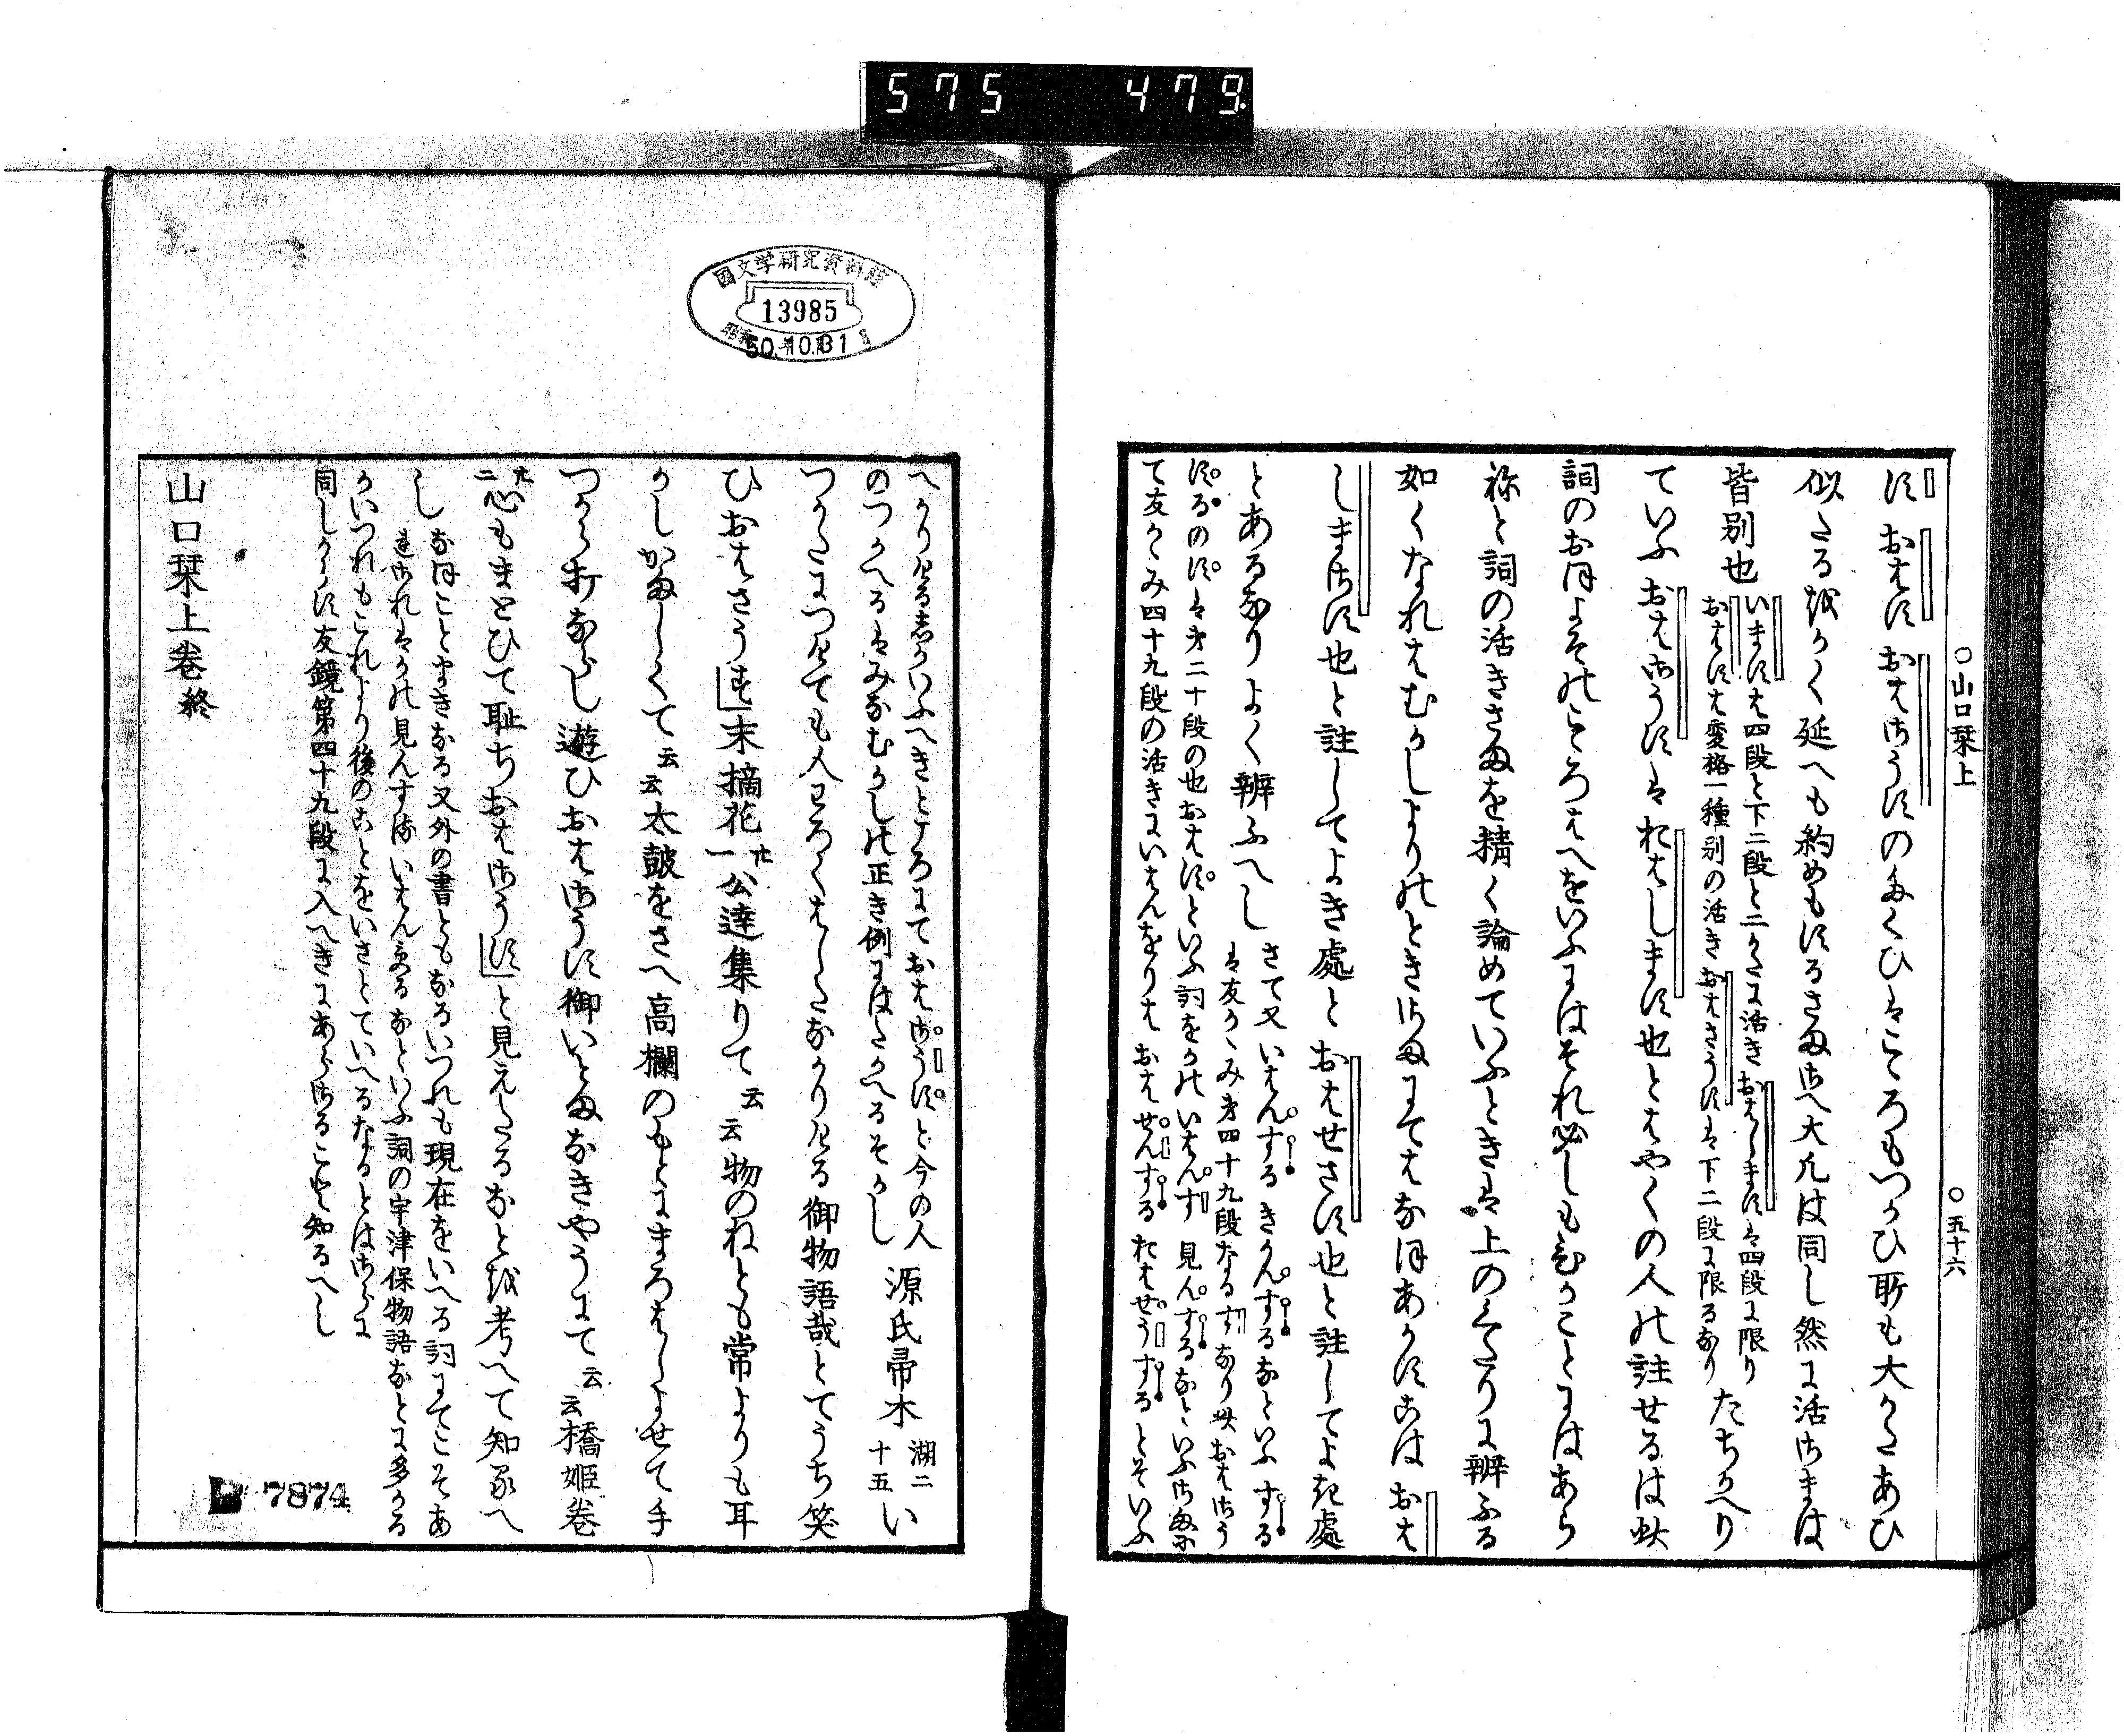 575 479
○山口栞上 ○五十六
す おはす おはさうすのたくひはこゝろもつかひ所も大かたあひ
似たるをかく延へも約めもするさまさへ大凡は同し然に活さまは
皆別也
いますは四段と下二段と二かたに活きおはしますは四段に限り
おはすは変格一種別の活きおはさうすは下二段に限るなり
たちかへり
ていふおはさうすはおはします也とはやくの人の註せるは此
詞のおほよそのこゝろえをいふにはそれ必しもひかことにはあら
ねと詞の活きさまを精く論めていふときは上のくたりに辨ふる
如くなれはむかしよりのときさまにてはなほあかすこはおは
しまさす也と註してよき處とおはせさす也と註してよき處
とあるなりよく辨ふへし
さて又いはんするきかんするなといふする
は友かゝみ第四十九段なるすなり此おはさう
するのすは第二十段の也おはすといふ詞をかのいはんす見んするなといふさまに
て友かゝみ四十九段の活きにいはんをりはおはせんするおはせうするとそいふ
へかりけるしかいふへきところにておはさうすと今の人
のつかへるはみなむかしの正き例にはたかへるそかし
源氏帚木
湖二
十五
い
つかたにつけても人わろくはしたなかりける御物語哉とてうち笑
ひおはさうす末摘花
廿
一
公達集りて云云物のねとも常よりも耳
かしかましくて云云太鼓をさへ高欄のもとにまろはしよせて手
つから打ならし遊ひおはさうす御いとまなきやうにて云云橋姫巻
廿
二
心もまとひて耻ちおはさうすと見えたるなとを考へて知るへ
し
なほことにきなる又外の書ともなるいつれも現在をいへる詞にてこそあ
れされはかの見んするいはんするなといふ詞の宇津保物語なとに多かる
かいつれもこれより後のことをいさとていへるなるとはさらに
同しからす友鏡第四十九段に入へきにあらさること知るへし
山口栞上巻終
國文学研究資料館
13985
昭和
50.10.31
7874